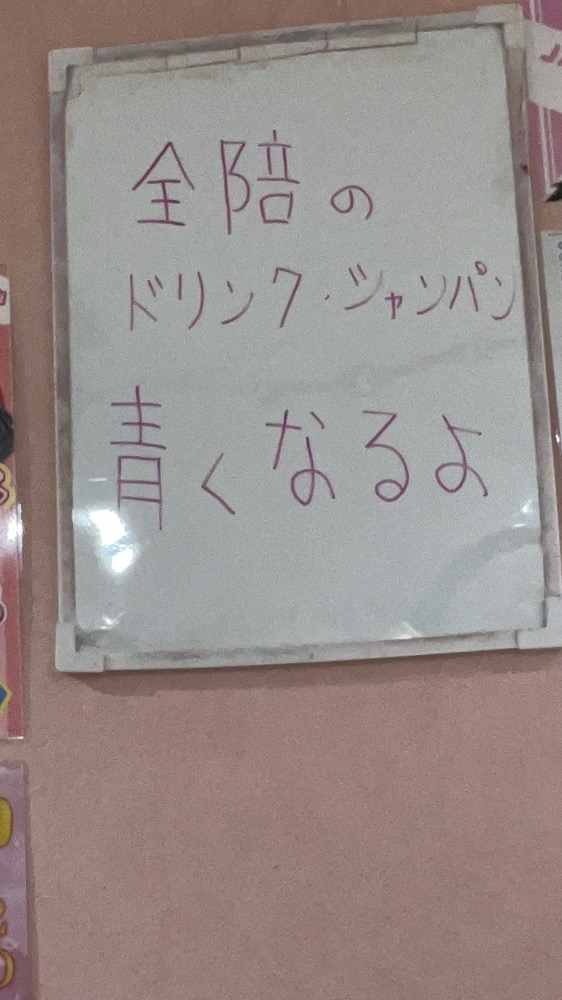 全陪の
ドリンク・シャンパン
青くなるよ